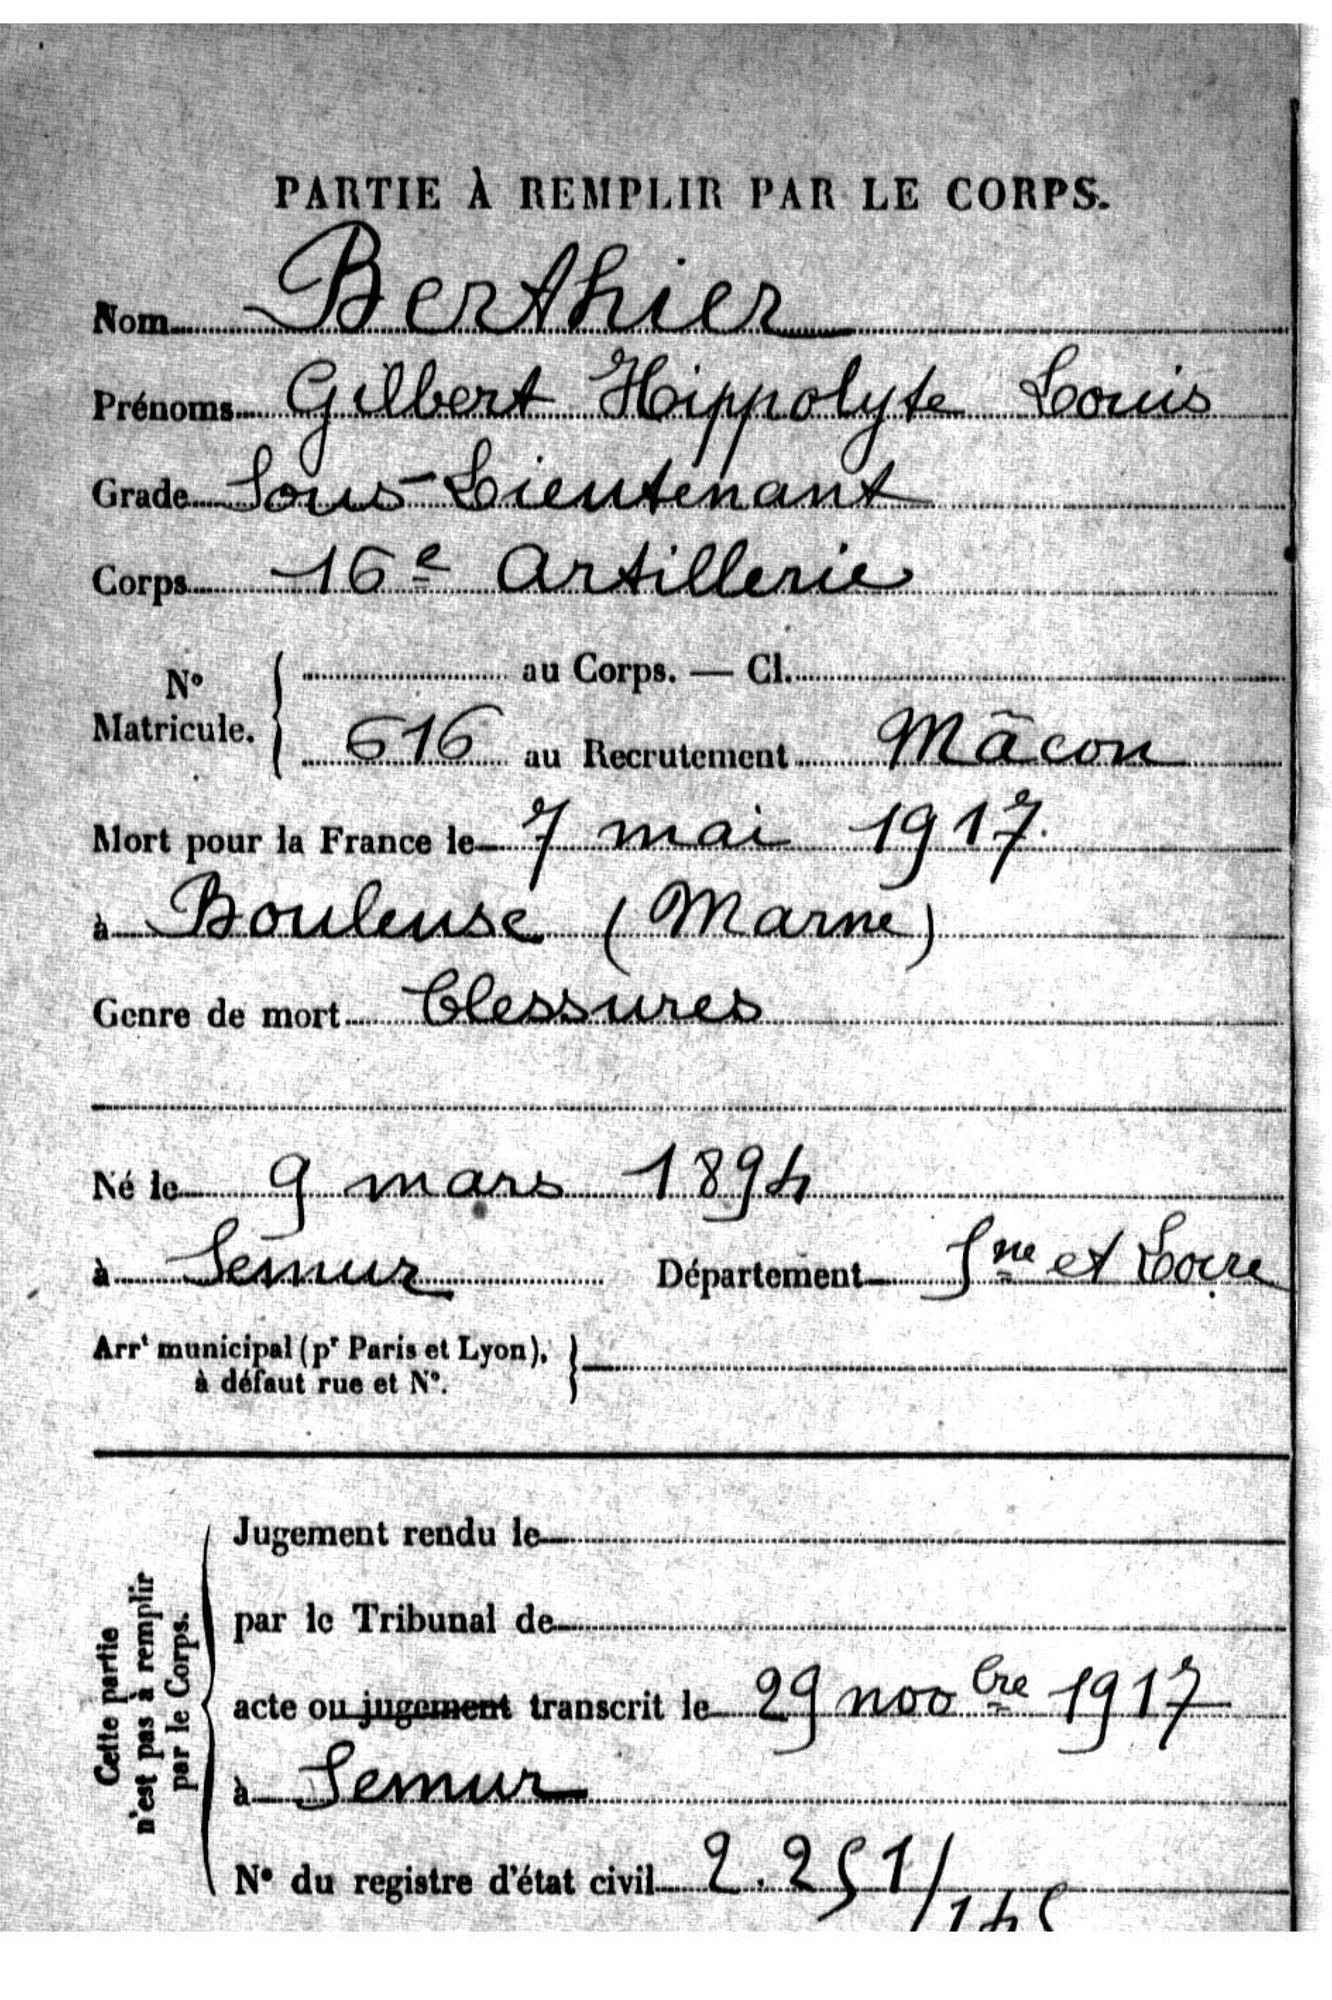 PARTIE À REMPLIR PAR LE CORPS.
Nom Berthier
Prénoms Gilbert Hippolyte Louis
Grade Sous-Lieutenant
Corps 16e Artillerie
No Matricule. { au Corps. — Cl.
616 au Recrutement Mâcon
Mort pour la France le 7 mai 1917
à Bouleuse (Marne)
Genre de mort blessures
Né le 9 mars 1894
à Semur Département Sne et Loire
Arrt municipal (pr Paris et Lyon), }
à défaut rue et No.
Cette partie
n'est pas à remplir
par le Corps.
Jugement rendu le
par le Tribunal de
acte ou jugement transcrit le 29 novbre 1917
à Semur
No du registre d'état civil 2.251/